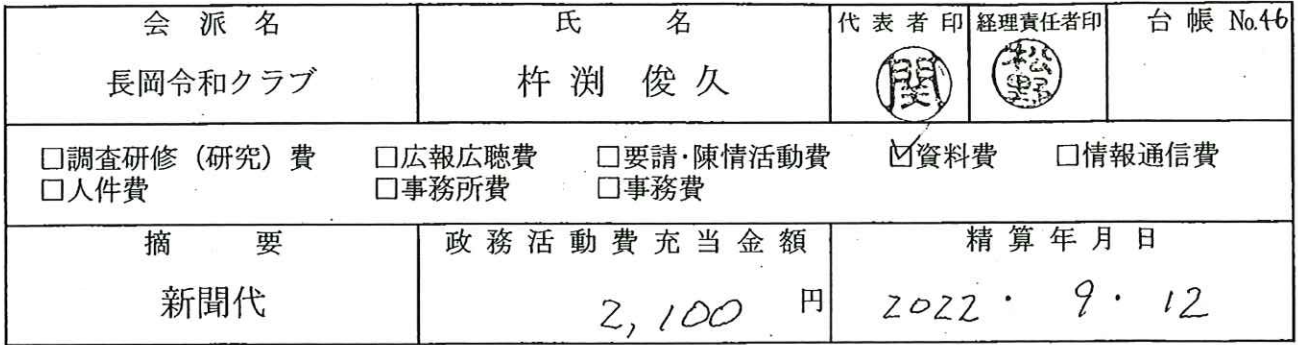 会派名 氏名 代表者印 経理責任者印 台帳 No.46
長岡令和クラブ 杵渕 俊久 関 松野
□調査研修（研究）費 □広報広聴費 □要請・陳情活動費 ☑資料費 □情報通信費
□人件費 □事務所費 □事務費
摘要 政務活動費充当金額 精算年月日
新聞代 2,100 円 2022・9・12